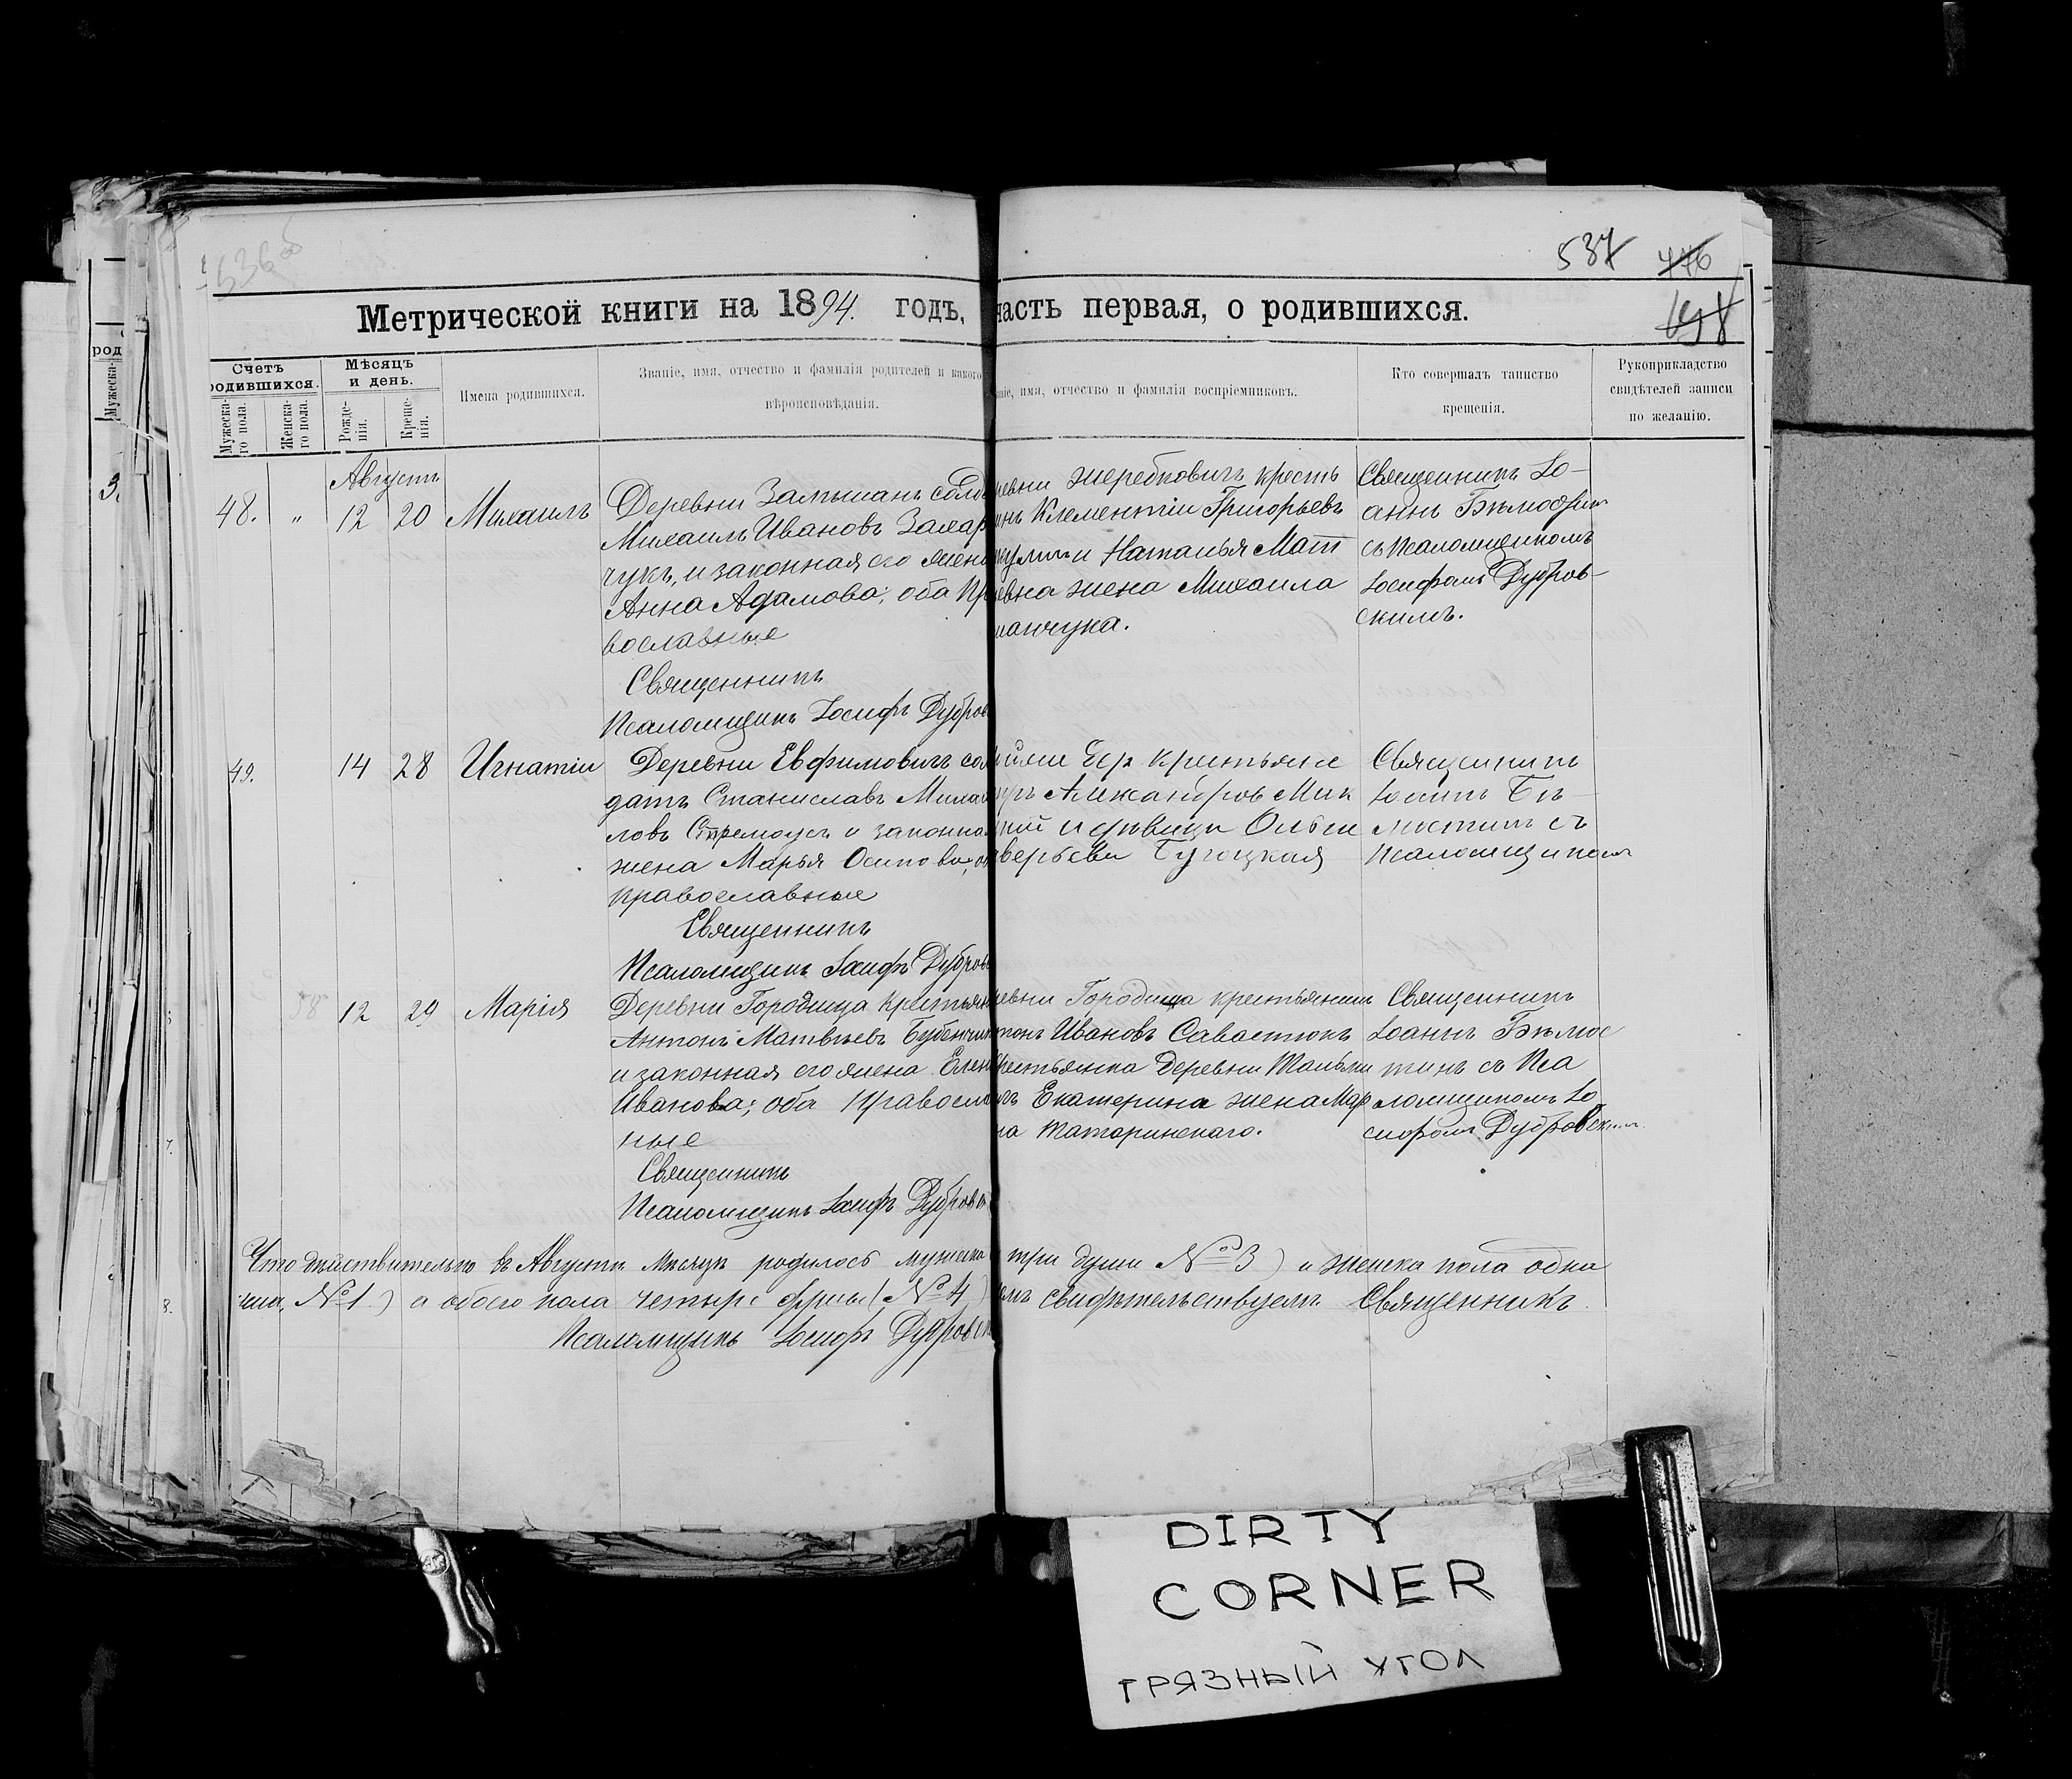 537 446
198
Метрической книги на 1894. годъ, часть первая, о родившихся.
Счетъ родившихся.
Мужеска-го пола.
Женска-го пола.
Мѣсяцъ и день.
Рожде-нія.
Креще-нія.
Имена родившихся.
Званіе, имя, отчество и фамилія родителей и какого
вѣроисповѣданія.
ніе, имя, отчество и фамилія воспріемниковъ.
Кто совершалъ таинство
крещенія.
Рукоприкладство
свидѣтелей записи
по желанію.
Августъ
48. " 12 20 Михаилъ
Деревни Залышанъ солд
Михаилъ Ивановъ Захар
чукъ, и законная его жен
Анна Адамова; оба Пр
вославные
Священникъ
Псаломщикъ Іосифъ Дубров
ревни Жеребковичъ кресть
инъ Клементій Григорьевъ
и Наталья Мат
ѣевна жена Михаила
манчука.
Священникъ Іо-
аннъ
съ Псаломщикомъ
Іосифомъ Дубров-
скимъ.
49. 14 28 Игнатій
Деревни Евфимовичъ сол
датъ Станиславъ Михаи
ловъ Стремоусъ и законна
жена Марья Осипова, о
православные
Священникъ
Псаломщикъ Іосифъ Дубров
крестьяне
Александров Мик
кій и Ольги
Бугоцкая
Священникъ
Іоаннъ Бѣ-
люстинъ съ
Псаломщиком
58 12 29 Марія
Деревни Городища крестьян
Антонъ Матвѣевъ Бубенчик
и законная его жена Елен
Иванова; оба Правосла
ные
Священникъ
Псаломщикъ Іосифъ Дубровс
ревни Городища крестьянинъ
тонъ Ивановъ Савастюкъ
крестьянка деревни
чъ Екатерина жена Мар
на Татаринскаго.
Священникъ
Іоаннъ Бѣлюс
тинъ съ Пса
ломщикомъ Іо
сифомъ Дубровским
Что дѣйствительно въ Августѣ мѣсяцѣ родилось мужеска три души № 3) и женска пола одна
№ 1) а обоего пола четыре души (№ 4) свидѣтельствуемъ Священникъ
Псаломщикъ Іосифъ Дубровск
DIRTY
CORNER
ГРЯЗНЫЙ УГОЛ